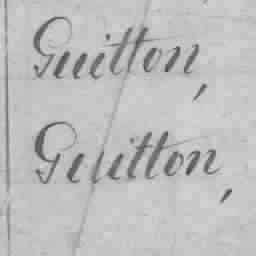 Guitton,
Guitton,